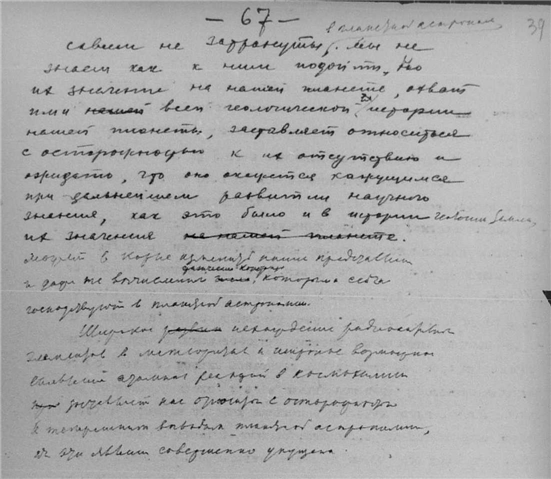 — 67 —
в планетной астрономии
39
совсем не затронуты. Мы не
знаем как к ним подойти, но
их значение на нашей планете, охват
ими нашей всей геологической истории
нашей планеты, заставляет относиться
с осторожностью к их отсутствию и
ожидать, что оно окажется кажущимся
при дальнейшем развитии научного
знания, как это было и в истории геологии Земли,
их значения на нашей планете.
Может в корне изменить наши представления
и даже же вычисления, которые сейчас
господствуют в планетной астрономии.
Широкое нахождение радиоактивных
элементов в метеоритах и
атомных реакций в космохимии
нас с осторожностью
к выводам планетной астрономии,
эти явления совершенно упущены.